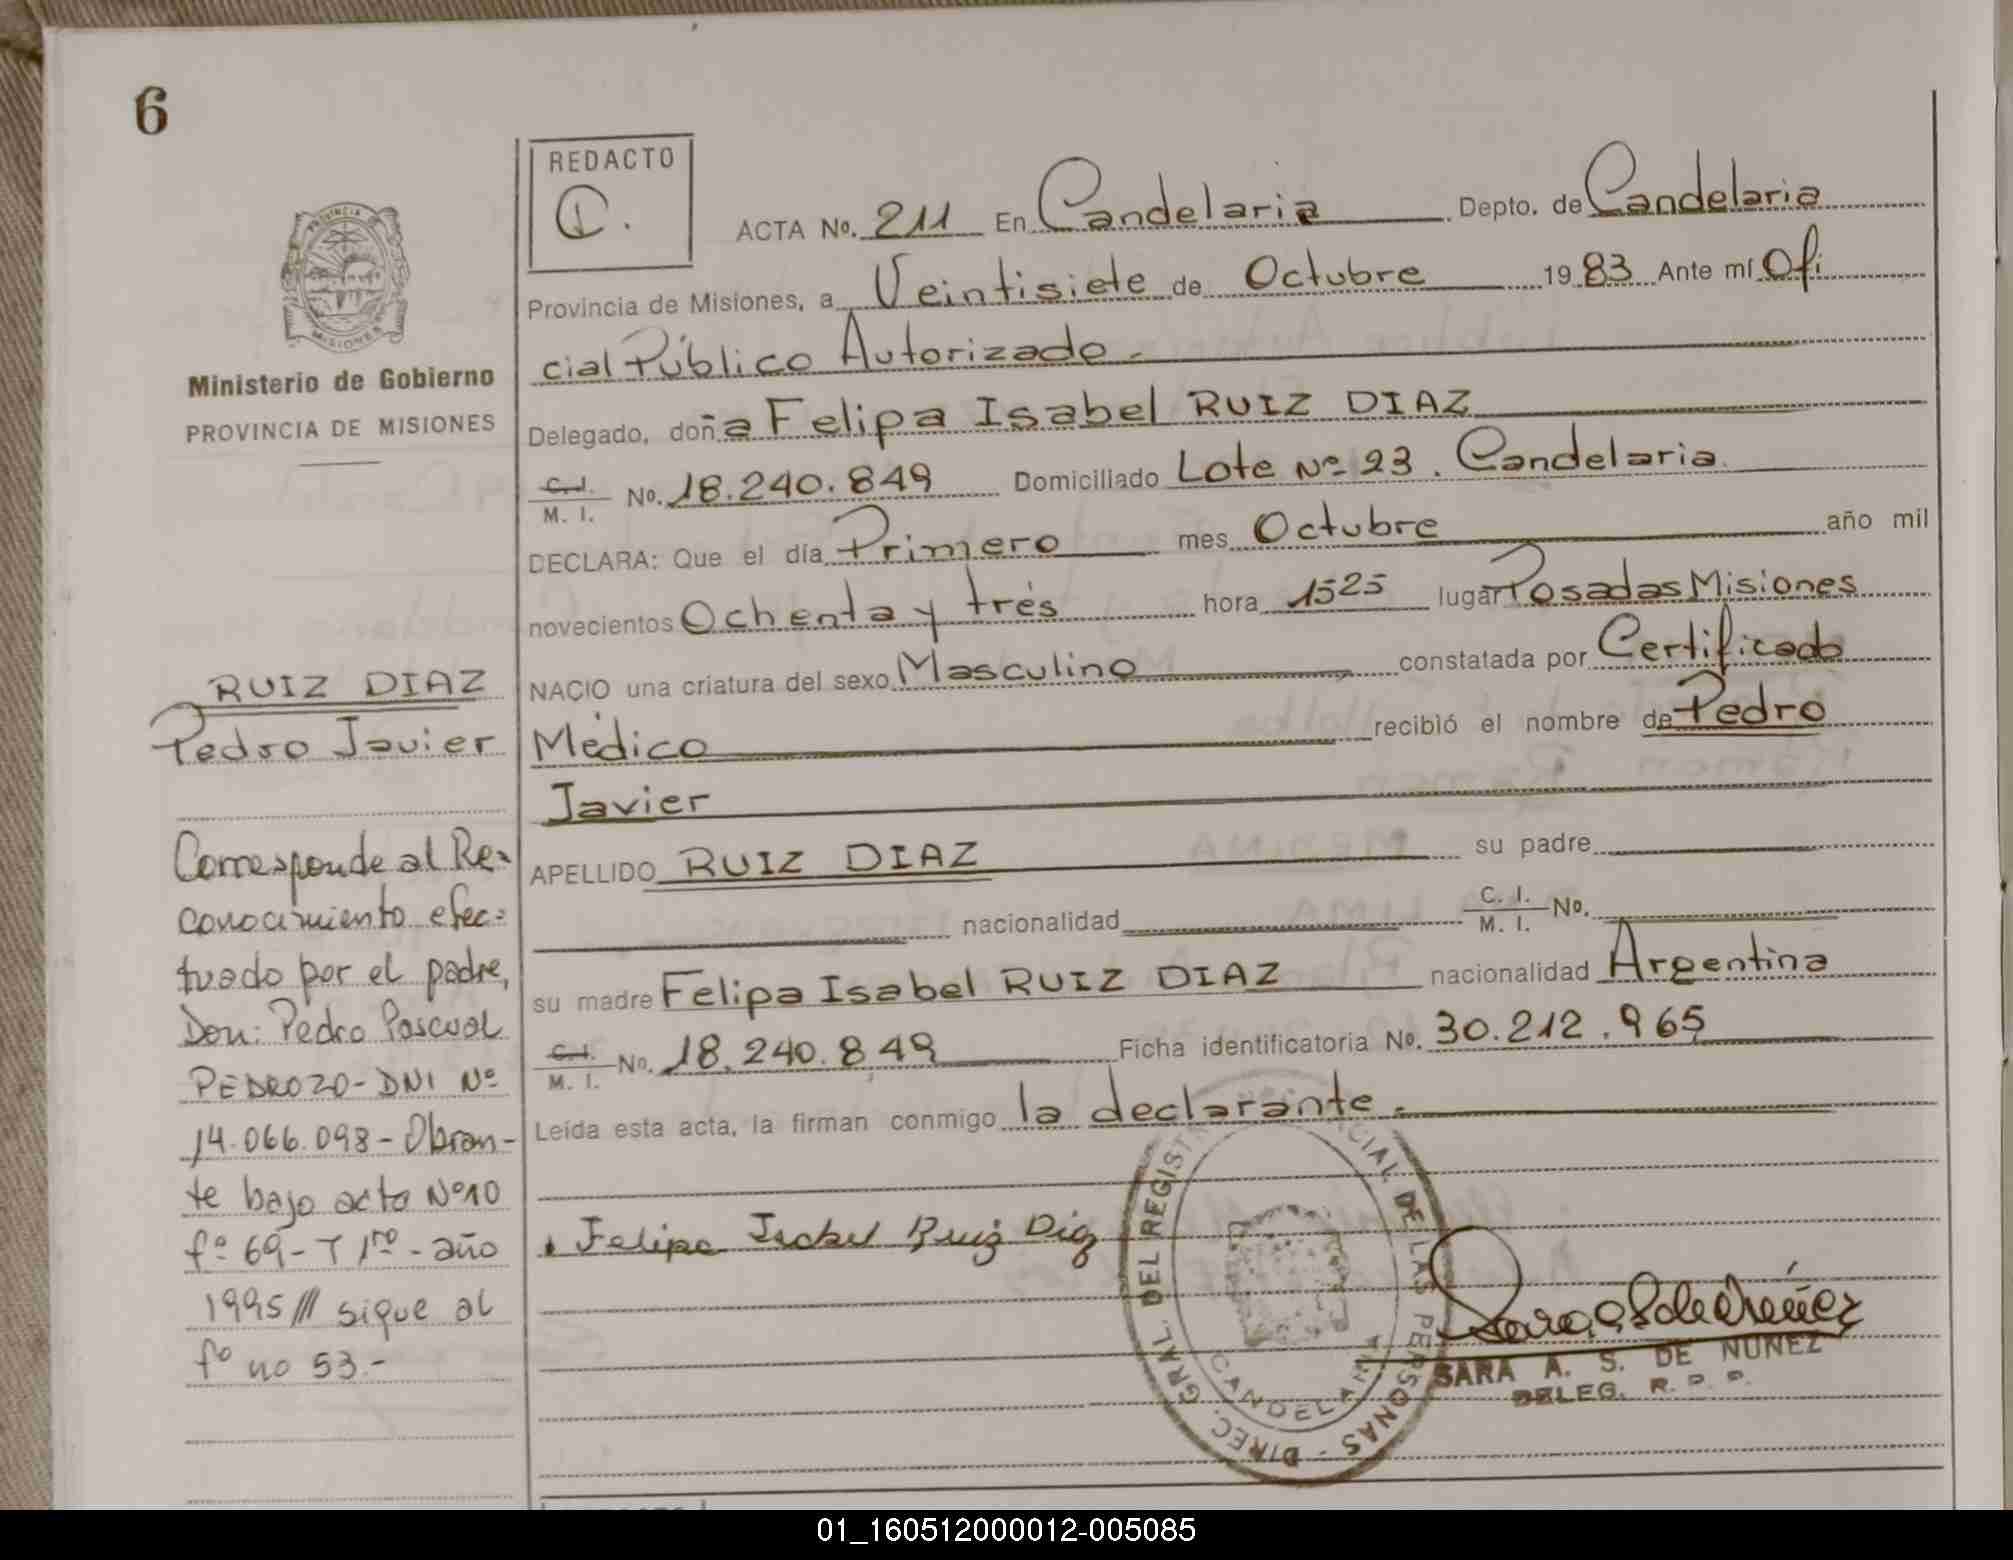 6
PROVINCIA
MISIONES
Ministerio de Gobierno
PROVINCIA DE MISIONES
RUIZ DIAZ
Pedro Javier
Corresponde al Re=
conocimiento efec=
tuado por el padre,
Don: Pedro Pascual
PEDROZO - DNI Nº
14.066.098 - Obran-
te bajo acta Nº 10
fº 69 - T 1ro - año
1995 /// sigue al
fº no 53.-
REDACTO
C.
ACTA No. 211 En Candelaria Depto. de Candelaria
Provincia de Misiones, a Veintisiete de Octubre 19 83 Ante mí Ofi
cial Público Autorizado.
Delegado, doña Felipa Isabel RUIZ DIAZ
C.I. M. I. No. 18.240.849 Domiciliado Lote Nº 23. Candelaria
DECLARA: Que el día Primero mes Octubre año mil
novecientos Ochenta y trés hora 1525 lugar Posadas Misiones
NACIO una criatura del sexo Masculino constatada por Certificado
Médico recibió el nombre de Pedro
Javier
APELLIDO RUIZ DIAZ su padre
nacionalidad C. I. M. I. No.
su madre Felipa Isabel RUIZ DIAZ nacionalidad Argentina
C.I. M. I. No. 18.240.849 Ficha identificatoria No. 30.212.965
Leída esta acta, la firman conmigo la declarante.
Felipa Isabel Ruiz Diaz
DIREC. GRAL. DEL REGISTRO PROVINCIAL DE LAS PERSONAS -
CANDELARIA
SARA A. S. DE NUÑEZ
DELEG. R. P. P.
01_160512000012-005085